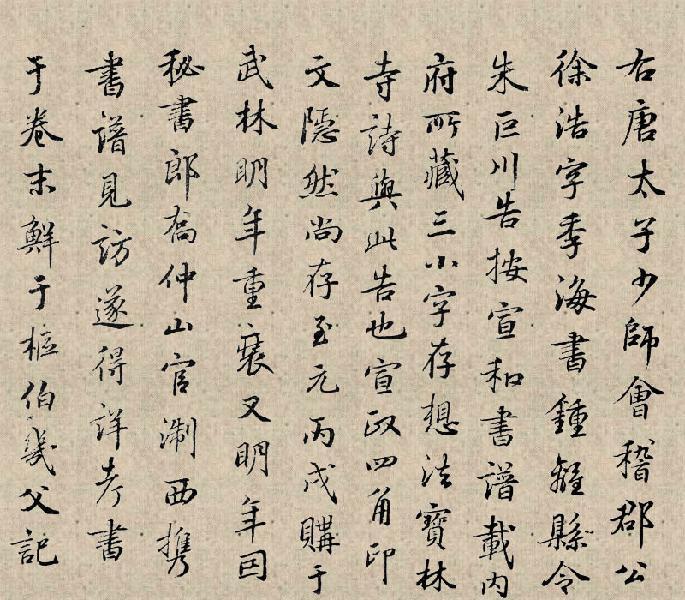 右唐太子少師會稽郡公
徐浩字季海書鍾離縣令
朱巨川告按宣和書譜載内
府所藏三小字存想法寶林
寺詩與此告也宣政四角印
文隱然尚存至元丙戌購于
武林明年重裝又明年因
秘書郎喬仲山官淛西携
書譜見訪遂得詳考書
于卷末鮮于樞伯幾父記